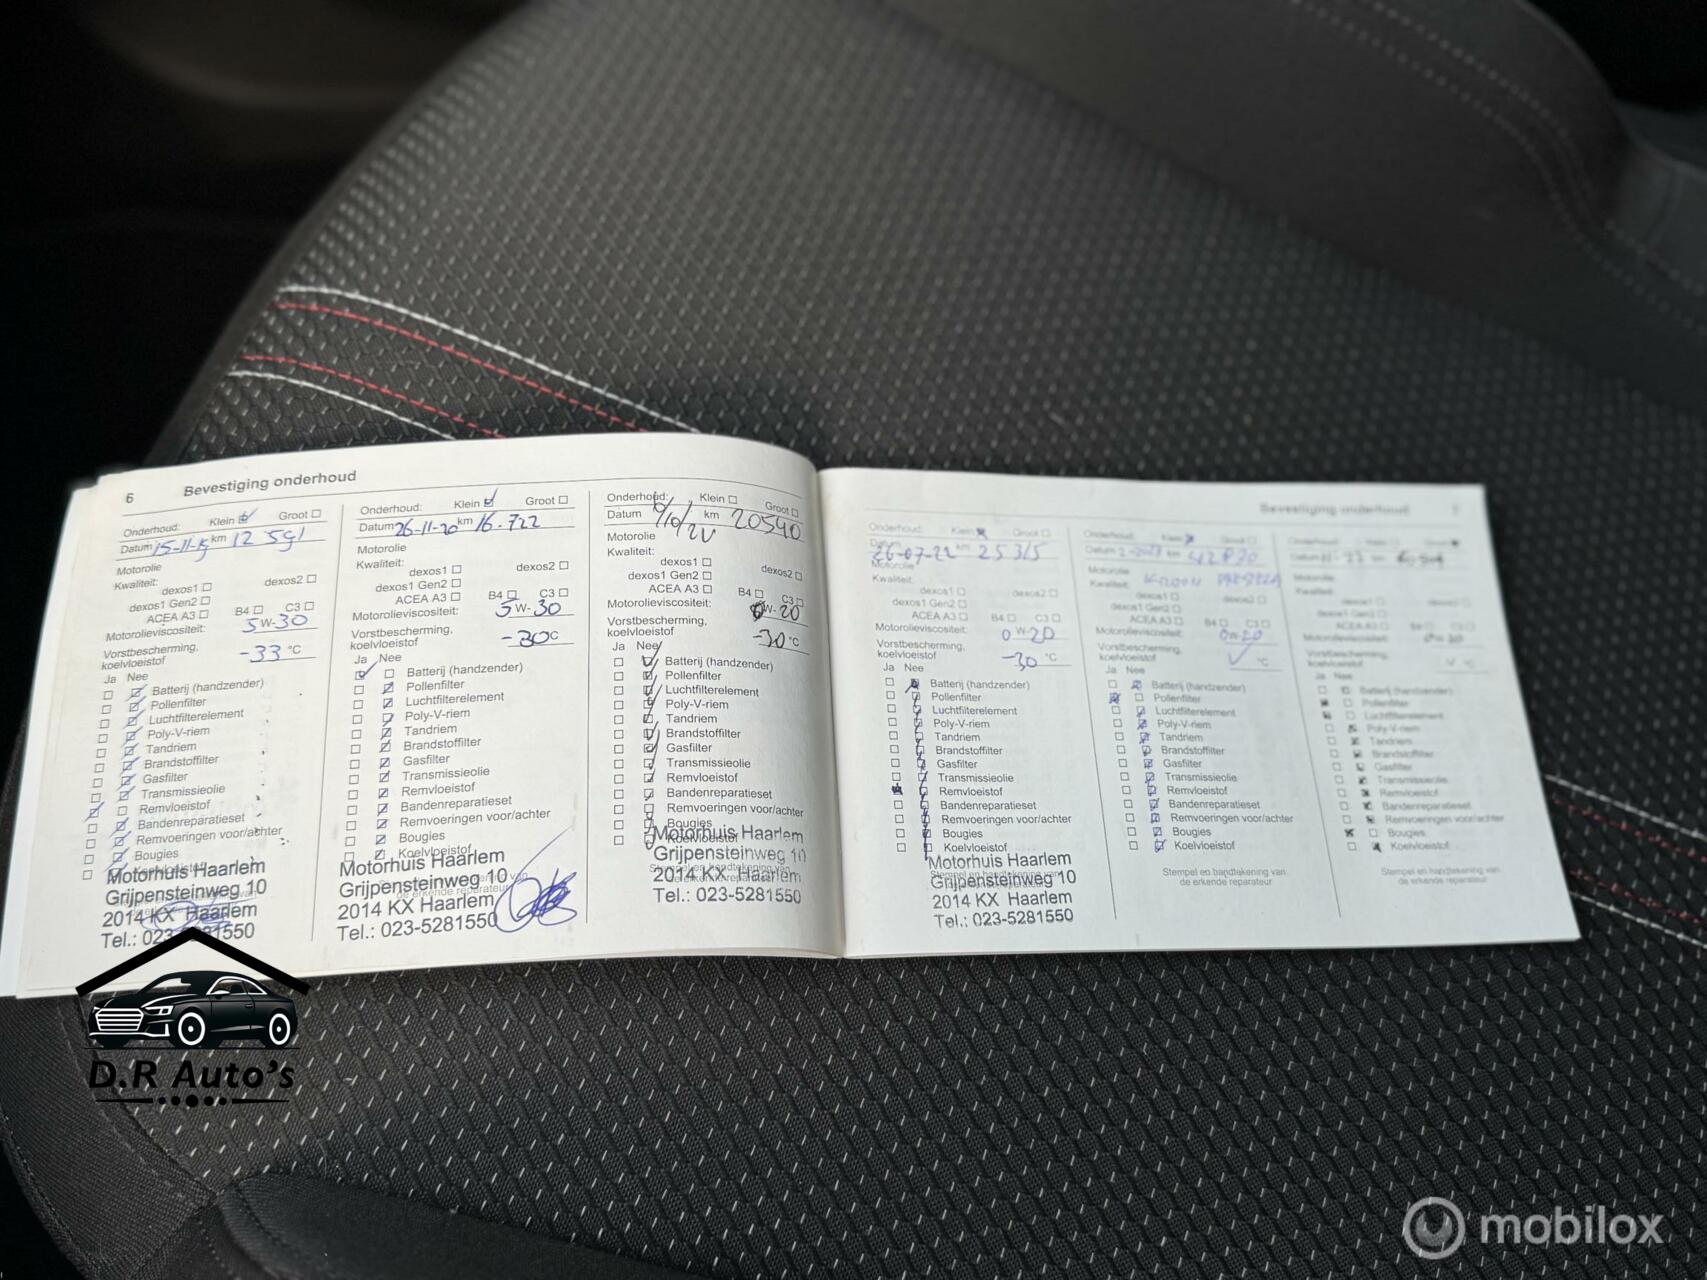 6 Bevestiging onderhoud
Onderhoud: Klein Groot
Datum 15-11-19 km 12 591
Motorolie
Kwaliteit:
dexos1 dexos2
dexos1 Gen2
ACEA A3 B4 C3
Motorolieviscositeit: 5W-30
Vorstbescherming,
koelvloeistof -33 °C
Ja Nee
Batterij (handzender)
Pollenfilter
Luchtfilterelement
Poly-V-riem
Tandriem
Brandstoffilter
Gasfilter
Transmissieolie
Remvloeistof
Bandenreparatieset
Remvoeringen voor/achter
Bougies
Motorhuis Haarlem
Grijpensteinweg 10
2014 KX Haarlem
Tel.: 023-5281550
Onderhoud: Klein Groot
Datum 26-11-20 km 16.722
Motorolie
Kwaliteit:
dexos1 dexos2
dexos1 Gen2
ACEA A3 B4 C3
Motorolieviscositeit: 5W-30
Vorstbescherming,
koelvloeistof -30°C
Ja Nee
Batterij (handzender)
Pollenfilter
Luchtfilterelement
Poly-V-riem
Tandriem
Brandstoffilter
Gasfilter
Transmissieolie
Remvloeistof
Bandenreparatieset
Remvoeringen voor/achter
Bougies
Koelvloeistof
Motorhuis Haarlem
Grijpensteinweg 10
2014 KX Haarlem
Tel.: 023-5281550
Onderhoud: Klein Groot
Datum km 20540
Motorolie
Kwaliteit:
dexos1 dexos2
dexos1 Gen2
ACEA A3 B4 C3
Motorolieviscositeit: 0W-20
Vorstbescherming,
koelvloeistof -30 °C
Ja Nee
Batterij (handzender)
Pollenfilter
Luchtfilterelement
Poly-V-riem
Tandriem
Brandstoffilter
Gasfilter
Transmissieolie
Remvloeistof
Bandenreparatieset
Remvoeringen voor/achter
Bougies
Koelvloeistof
Motorhuis Haarlem
Grijpensteinweg 10
2014 KX Haarlem
Tel.: 023-5281550
Bevestiging onderhoud 7
Onderhoud: Klein Groot
Datum 26-07-22 km 25315
Motorolie
Kwaliteit:
dexos1 dexos2
dexos1 Gen2
ACEA A3 B4 C3
Motorolieviscositeit: 0W-20
Vorstbescherming,
koelvloeistof -30 °C
Ja Nee
Batterij (handzender)
Pollenfilter
Luchtfilterelement
Poly-V-riem
Tandriem
Brandstoffilter
Gasfilter
Transmissieolie
Remvloeistof
Bandenreparatieset
Remvoeringen voor/achter
Bougies
Koelvloeistof
Motorhuis Haarlem
Grijpensteinweg 10
2014 KX Haarlem
Tel.: 023-5281550
Onderhoud: Klein Groot
Datum km
Motorolie
Kwaliteit:
dexos1 dexos2
dexos1 Gen2
ACEA A3 B4 C3
Motorolieviscositeit: 0W-20
Vorstbescherming,
koelvloeistof °C
Ja Nee
Batterij (handzender)
Pollenfilter
Luchtfilterelement
Poly-V-riem
Tandriem
Brandstoffilter
Gasfilter
Transmissieolie
Remvloeistof
Bandenreparatieset
Remvoeringen voor/achter
Bougies
Koelvloeistof
Stempel en handtekening van
de erkende reparateur
Onderhoud: Klein Groot
Datum km
Motorolie
Kwaliteit:
dexos1 dexos2
dexos1 Gen2
ACEA A3 B4 C3
Motorolieviscositeit:
Vorstbescherming,
koelvloeistof °C
Ja Nee
Batterij (handzender)
Pollenfilter
Luchtfilterelement
Poly-V-riem
Tandriem
Brandstoffilter
Gasfilter
Transmissieolie
Remvloeistof
Bandenreparatieset
Remvoeringen voor/achter
Bougies
Koelvloeistof
Stempel en handtekening van
de erkende reparateur
D.R Auto's
mobilox